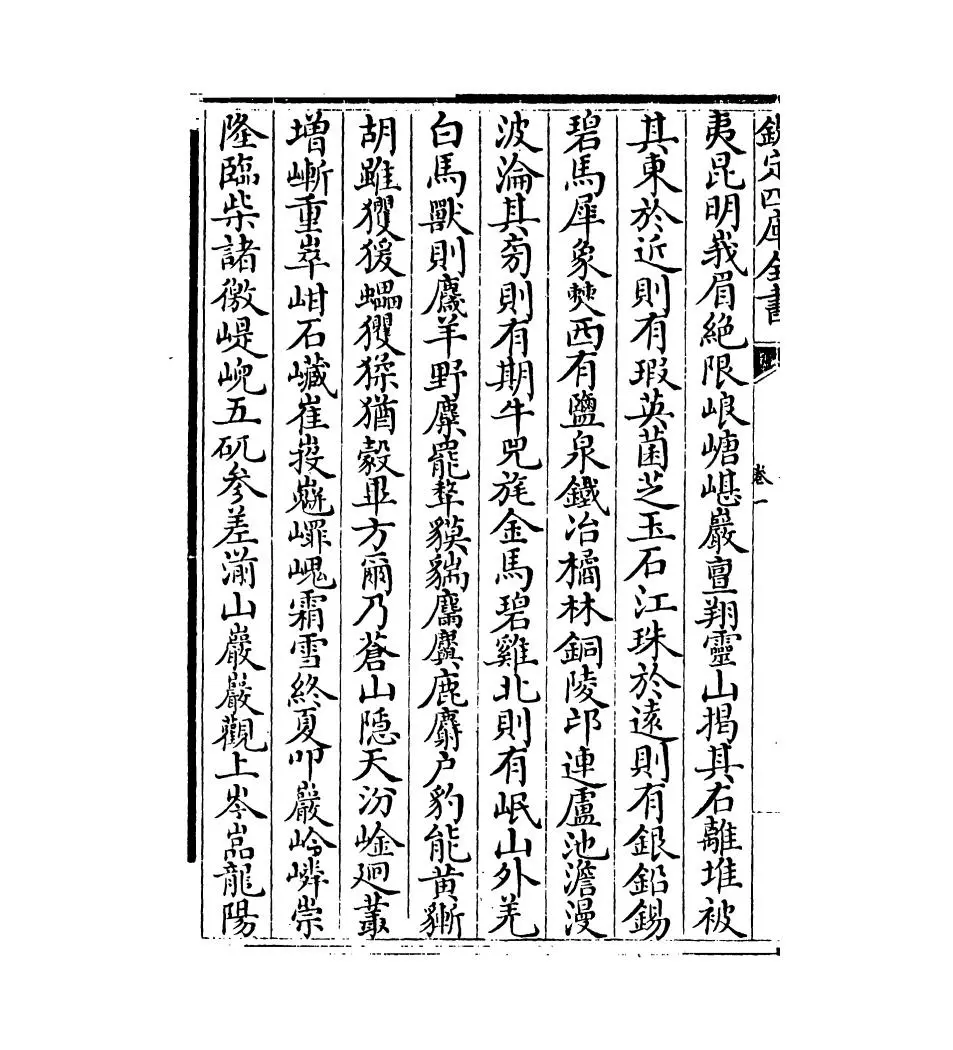 欽定四庫全書
卷一
夷昆明峩眉絶限㟍嵣嵁巖亶翔靈山揭其右離堆被
其東於近則有瑕英菌芝玉石江珠於遠則有銀鉛錫
碧馬犀象僰西有鹽泉鐵冶橘林銅陵邙連盧池澹漫
波淪其旁則有期牛兕旄金馬碧雞北則有岷山外羌
白馬獸則麙羊野麋罷犛貘貒麢鹿麝户豹能黄
胡雖玃猨蠝玃猱猶豰畢方爾乃蒼山隱天汾崯廻叢
增嶃重崒岪石巀崔嵕嶵嵬霜雪終夏叩巖岭嶙崇
隆臨柴諸徼崼崥五矹参差湔山巖巖觀上岑嵓龍陽